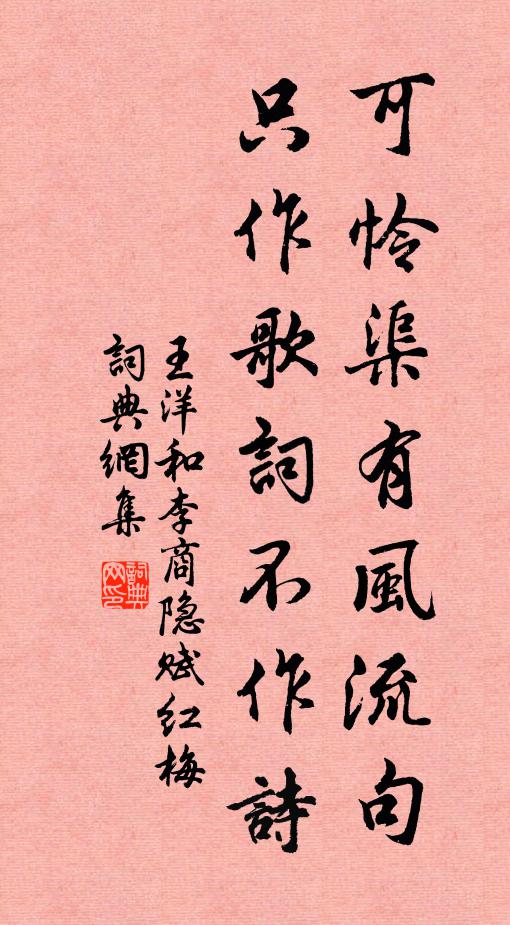 可怜渠有風流句
只作歌詞不作詩
王洋和李商隐赋红梅
詞典網集
詞典网印